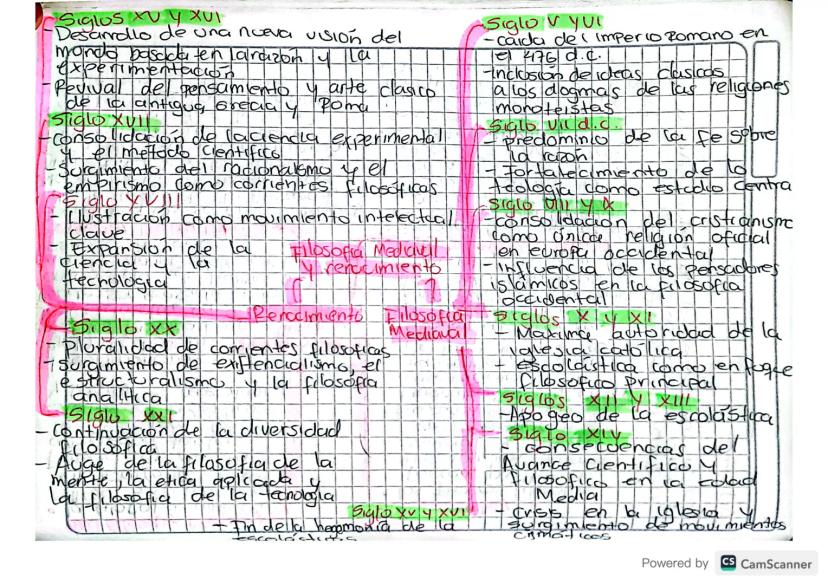 Siglos XV y XVI
- Desarrollo de una nueva visión del
mondo basada en la razón y la
experimentación
- Revival del pensamiento y arte clasico
de la antigua, Grecia y Roma
Siglo XVII
- consolidación de la ciencia experimental
y el método científico
- Surgimiento del racionalismo y el
empirismo como corrientes filosóficas
Siglo XVIII
- Ilustración como movimiento intelectual
clave
- Expansión de la
ciencia y la
tecnologia
Filosofía Medievall
y renacimiento
Renacimiento
Filosofia
Medieval
Siglo XX
- Pluralidad de corrientes filosoficas
- surgimiento de existencialismo, el
estructuralismo y la filosofia
analitica
Siglo XXI
- continuación de la diversidad
filosófica
- Auge de la filosofia de la
mente, la etica aplicada y
la filosofia de la tecnología
Siglo V y VI
- caida del imperio romano en
el 476 d.c.
- Inclusión de ideas clasicas
a los dogmas de las religiones
monoteistas
Siglo VII d.c.
- predominio de la fe sobre
la razon
- Fortalecimiento de la
teologia como estudio centra
Siglo VIII y IX
- consolidacion del cristianismo
como única religión oficial
en europa occidental
- influencia de los pensadores
islamicos en la filosofia
occidental
Siglos X y XI
- Maxima autoridad de la
iglesia católica
- escolástica como enfoque
filosofico principal
Siglos XII y XIII
- Apogeo de la escolástica
Siglo XIV
- consecuencias del
Avance cientifico y
filosofico en la edad
Media
- crisis en la iglesia y
surgimiento de movimientos
Siglo XV y XVI
- Fin de la hegmonia de la
Powered by CS CamScanner